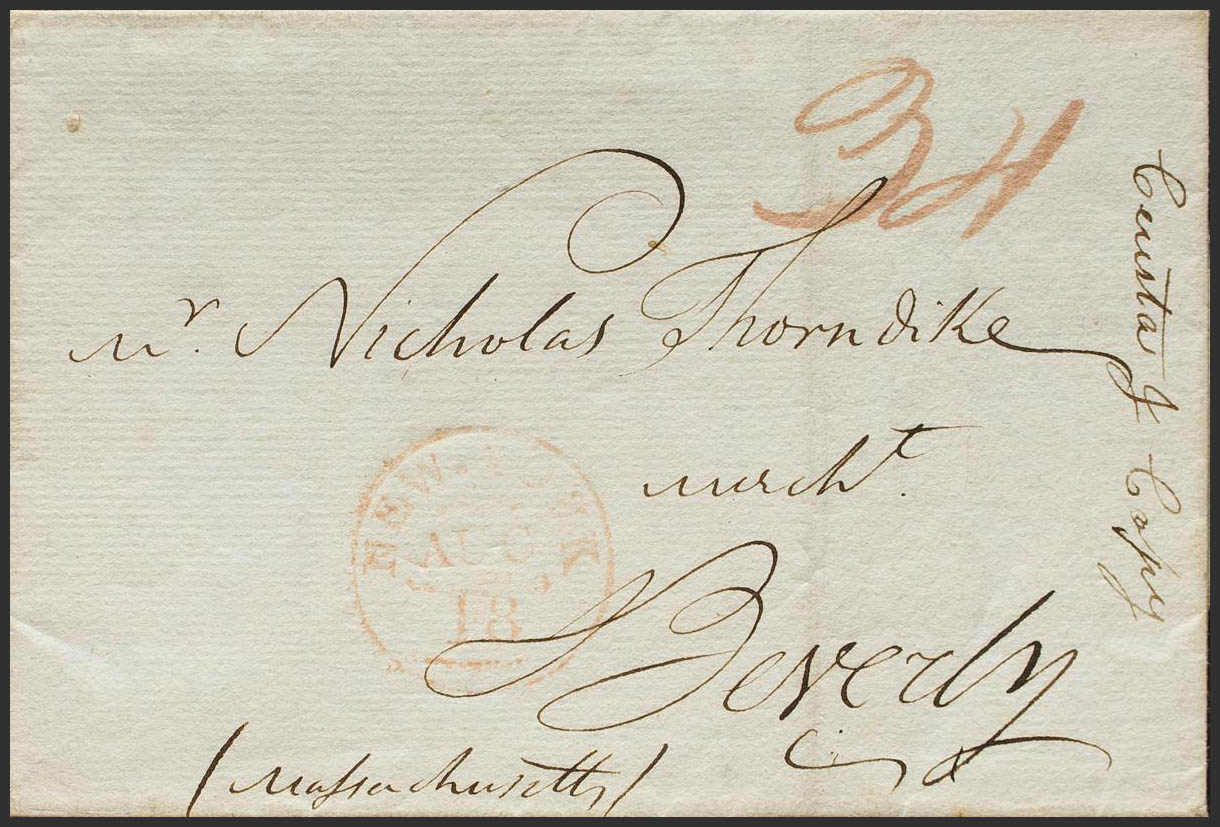 34
Mr. Nicholas Thorndike
mercht.
Beverly
(Massachusetts)
NEW-YORK
AUG
18
& Copy